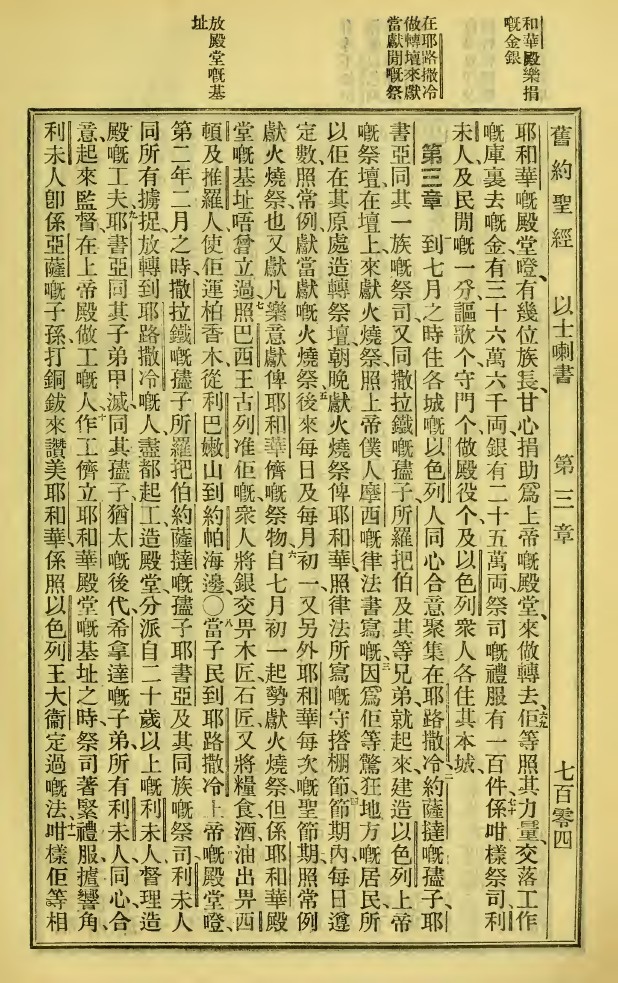 和華殿樂捐
嘅金銀
在耶路撒冷
做轉壇來獻
當獻閒嘅祭
放殿堂嘅基
址
舊約聖經 以士喇書 第三章 七百零四
耶和華嘅殿堂嶝、有幾位族長、甘心捐助爲上帝嘅殿堂、來做轉去、六九佢等照其力量、交落工作
嘅庫裏去嘅金有三十六萬六千両、銀有二十五萬両、祭司嘅禮服有一百件、七十係咁樣祭司利
未人及民閒嘅一分、謳歌个守門个做殿役个、及以色列衆人、各住其本城、
第三章 一到七月之時、住各城嘅以色列人、同心合意聚集在耶路撒冷、二約薩撻嘅孻子耶
書亞、同其一族嘅祭司、又同撒拉鐵嘅孻子所羅把伯、及其等兄弟、就起來建造以色列上帝
嘅祭壇、在壇上來獻火燒祭、照上帝僕人摩西嘅律法書寫嘅、三因爲佢等驚狂地方嘅居民、所
以佢在其原處造轉祭壇、朝晚獻火燒祭俾耶和華、四照律法所寫嘅、守搭棚節、節期內、每日遵
定數照常例獻當獻嘅火燒祭、五後來每日及每月初一、又另外耶和華每次嘅聖節期、照常例
獻火燒祭也、又獻凡樂意獻俾耶和華儕嘅祭物、六自七月初一起勢獻火燒祭、但係耶和華殿
堂嘅基址唔曾立過、七照巴西王古列准佢嘅、衆人將銀交畀木匠石匠、又將糧食酒油、出畀西
頓及推羅人、使佢運柏香木、從利巴嫩山到約帕海邊、〇八當子民到耶路撒冷上帝嘅殿堂嶝、
第二年二月之時、撒拉鐵嘅孻子所羅把伯、約薩撻嘅孻子耶書亞、及其同族嘅祭司利未人、
同所有擄捉放轉到耶路撒冷嘅人、盡都起工造殿堂、分派自二十歲以上嘅利未人、督理造
殿嘅工夫、九耶書亞同其子弟、甲滅同其孻子、猶太嘅後代、希拿達嘅子弟、所有利未人、同心合
意、起來監督在上帝殿做工嘅人、十作工儕立耶和華殿堂嘅基址之時、祭司著緊禮服㨪響角、
利未人卽係亞薩嘅子孫、打銅鈸來讚美耶和華、係照以色列王大衞定過嘅法、十一咁樣佢等相